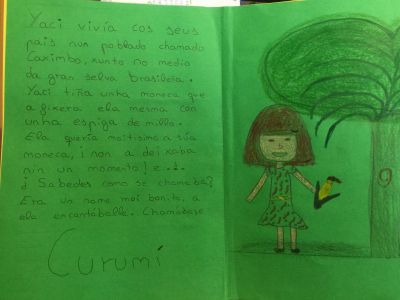 Yaci vivía cos seus
pais nun poblado chamado
Caximbo, xunto no medio
da gran selva brasileña.
Yaci tiña unha moneca que
a fixera ela mesma con
unha espiga de millo.
Ela quería moitísimo a súa
moneca, i non a deixaba
nin un momento! e...
¿Sabedes como se chamaba?
Era un nome moi bonito, a
ela encantáballe. Chamábase
Curumí